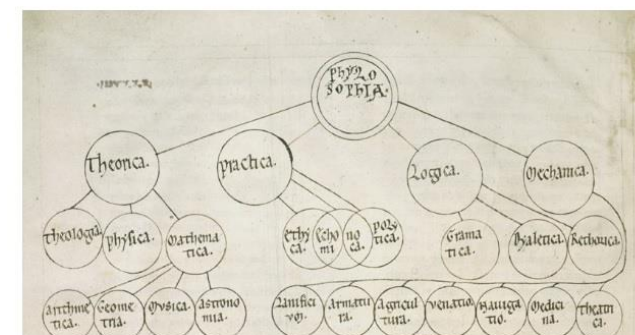 phylo
sophia.
Theorica.
practica.
Logica.
Mechanica.
Theologia
phisica.
Mathema
tica.
ethy
ca.
Echo
mi
no
ca.
poly
tica.
Grama
tica.
Dyaletica.
Rethorica.
Arithme
tica.
Geome
tria.
Musica.
Astrono
mia.
Lanifici
um.
Armatu
ra.
Agricul
tura.
venatio.
Naviga
tio.
Medici
na.
Theatri
ca.